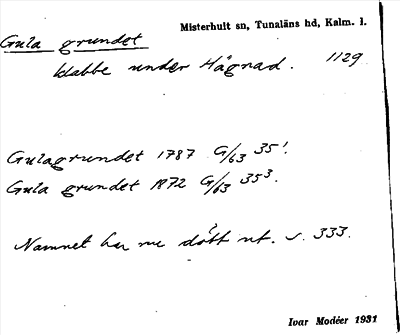 Misterhult sn, Tunaläns hd, Kalm. l.
Gula grundet
klabbe under Hägnad. 1129
Gulagrundet 1787 G/63 35¹.
Gula grundet 1872 G/63 35³.
Namnet har nu dött ut. s. 333.
Ivar Modéer 1931